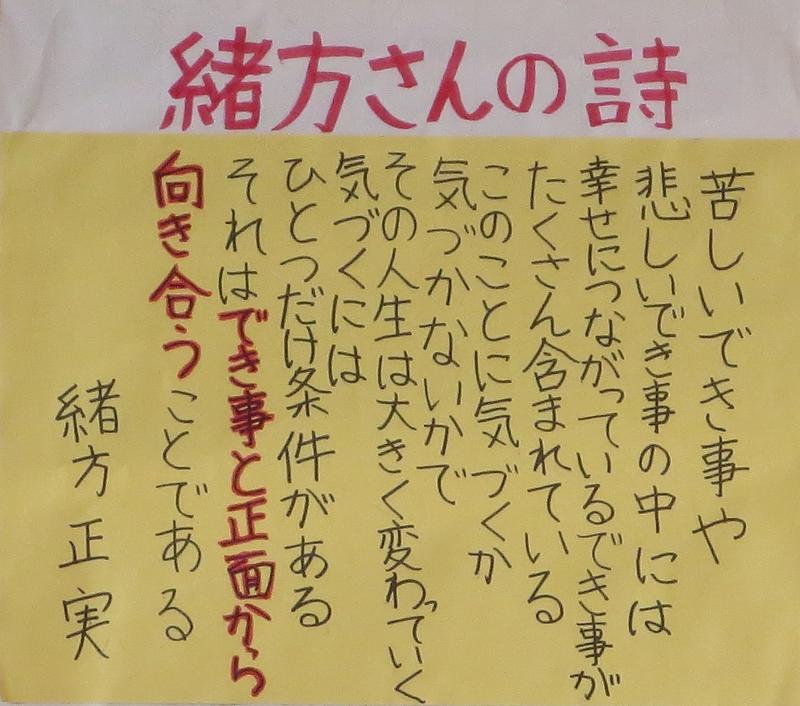 緒方さんの詩
苦しいでき事や
悲しいでき事の中には
幸せにつながっているでき事が
たくさん含まれている
このことに気づくか
気づかないかで
その人生は大きく変わっていく
気づくには
ひとつだけ条件がある
それはでき事と正面から
向き合うことである
緒方正実